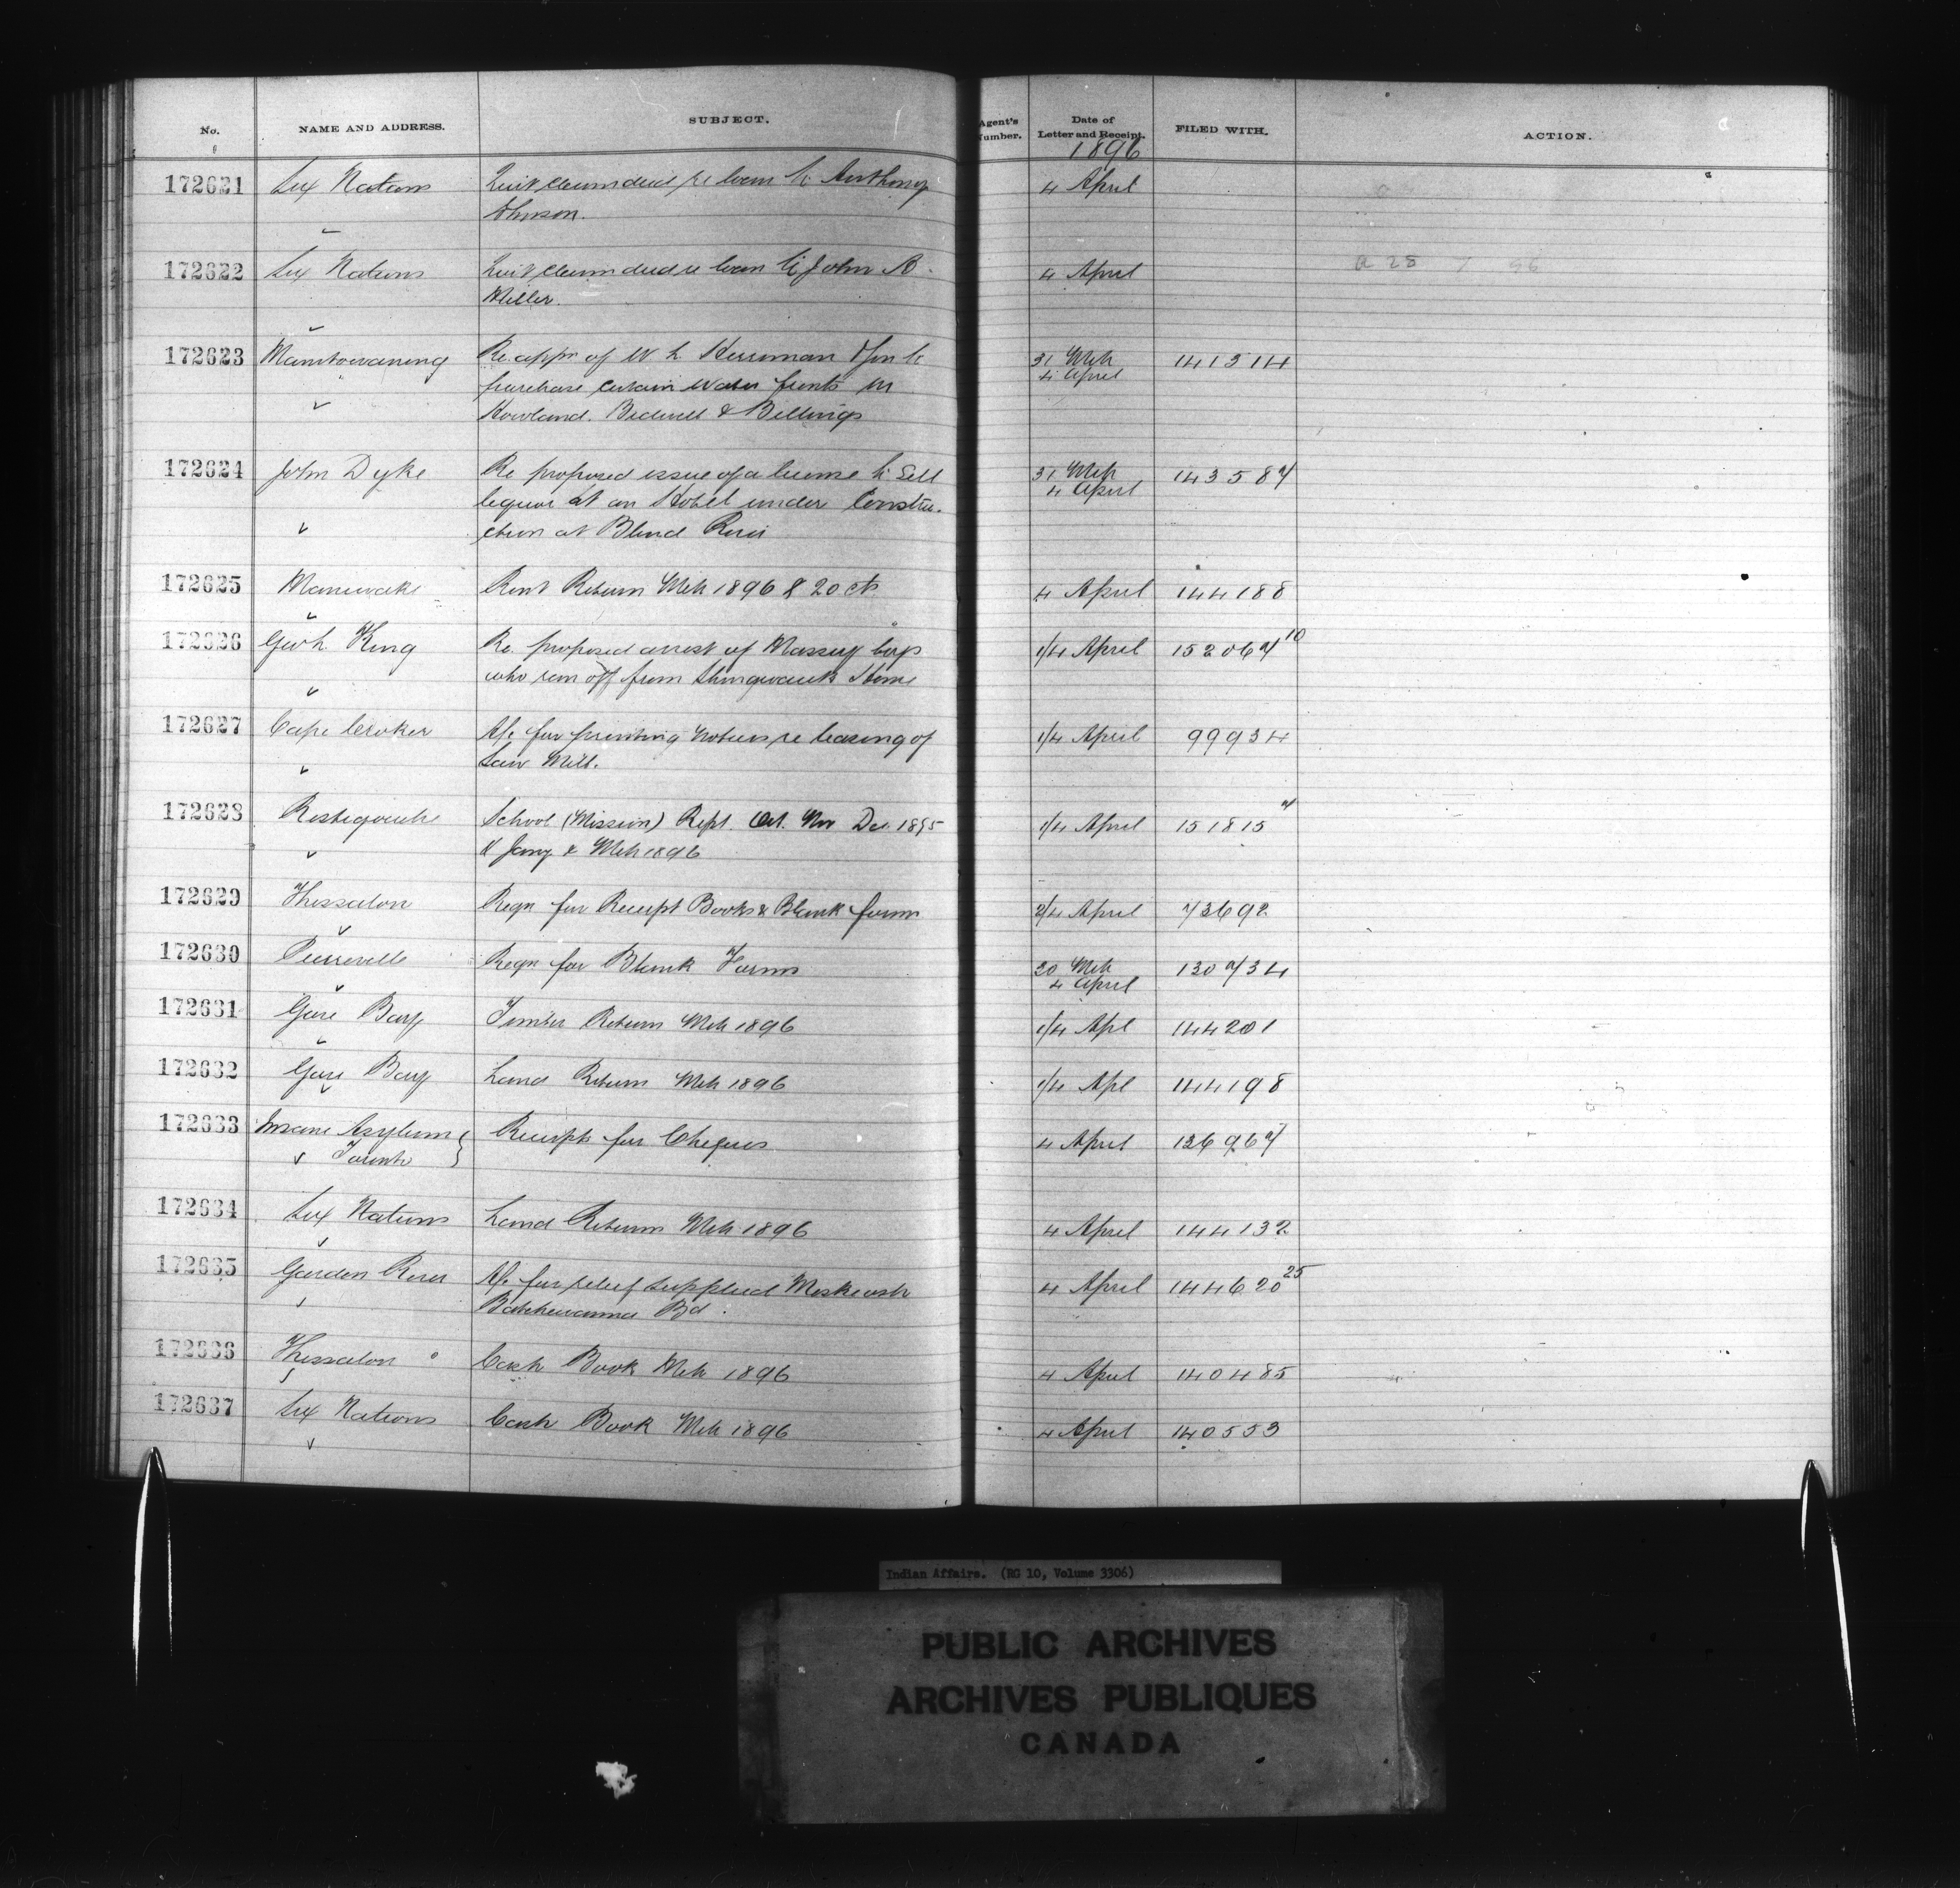 No. NAME AND ADDRESS. SUBJECT. Agent's Number. Date of Letter and Receipt. FILED WITH. ACTION.
1896
172621 Six Nations Quit claim deed re loan to Anthony 4 April
Johnson.
172622 Six Nations Quit claim deed re loan to John A. 4 April
Miller.
172623 Manitowaning Re appn of W. h. Herriman & Son to 31 Mch 141514
purchase certain water fronts in 4 April
Howland. Bidwell & Billings
172624 John Dyke Re proposed issue of a license to sell 31 Mch 143587
liquor at an Hotel under Constru- 4 April
ction at Blind River
172625 Maniwaki Rent Return Mch 1896 $ 20 cts 4 April 144188
172626 Geo h. King Re proposed arrest of Massey boys 1/4 April 152067 10
who run off from Shingwauk Home
172627 Cape Croker A/c for printing Notices re leasing of 1/4 April 99934
Saw Mill.
172628 Restigouche School (Mission) Rept. Oct. Nov Dec. 1895 1/4 April 151815 7
& Jany & Mch 1896
172629 Thessalon Reqn for Receipt Books & Blank forms 2/4 April 73692
172630 Pierreville Reqn for Blank Forms 30 Mch 130734
4 April
172631 Gore Bay Timber Return Mch 1896 1/4 Apl 144201
172632 Gore Bay Land Return Mch 1896 1/4 Apl 144198
172633 Insane Asylum Receipts for Cheques 4 April 126967
Toronto
172634 Six Nations Land Return Mch 1896 4 April 144132
172635 Garden River A/c for relief supplied Meskeash 4 April 144620 25
Batchewanna Bd.
172636 Thessalon Cash Book Mch 1896 4 April 140485
172637 Six Nations Cash Book Mch 1896 4 April 140553
Indian Affairs. (RG 10, Volume 3306)
PUBLIC ARCHIVES
ARCHIVES PUBLIQUES
CANADA